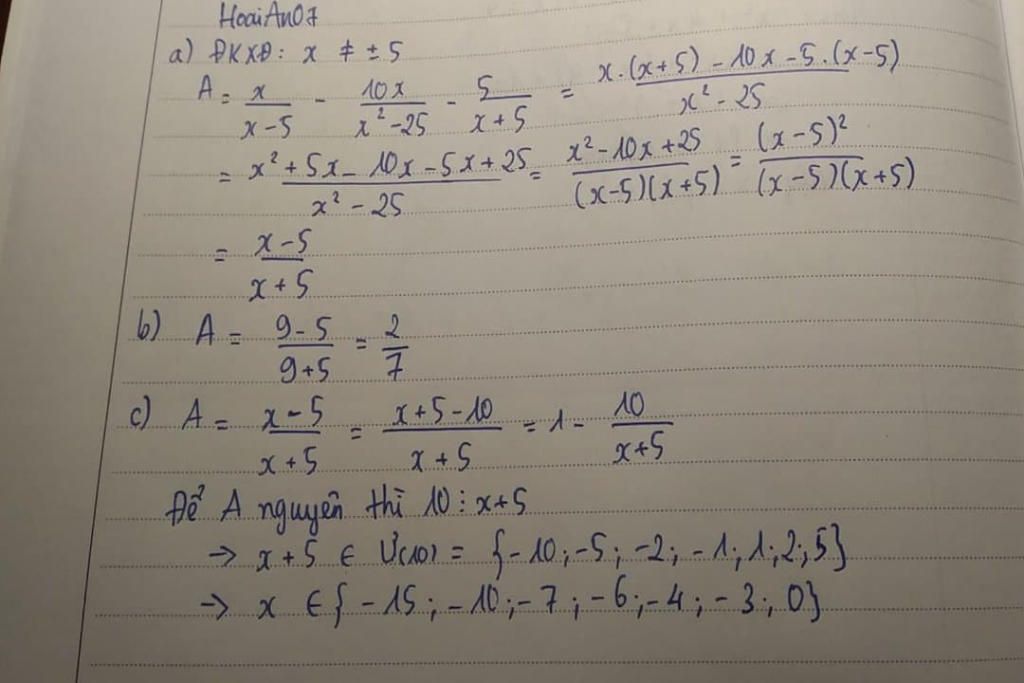 HoaiAn07
a) ĐKXĐ: x ≠ ± 5
A = x/(x-5) - 10x/(x²-25) - 5/(x+5) = (x.(x+5) - 10x - 5.(x-5))/(x²-25)
= (x²+5x-10x-5x+25)/(x²-25) = (x²-10x+25)/((x-5)(x+5)) = (x-5)²/((x-5)(x+5))
= (x-5)/(x+5)
b) A = (9-5)/(9+5) = 2/7
c) A = (x-5)/(x+5) = (x+5-10)/(x+5) = 1 - 10/(x+5)
Để A nguyên thì 10 ⋮ x+5
→ x+5 ∈ Ư(10) = {-10;-5;-2;-1;1;2;5}
→ x ∈ {-15;-10;-7;-6;-4;-3;0}